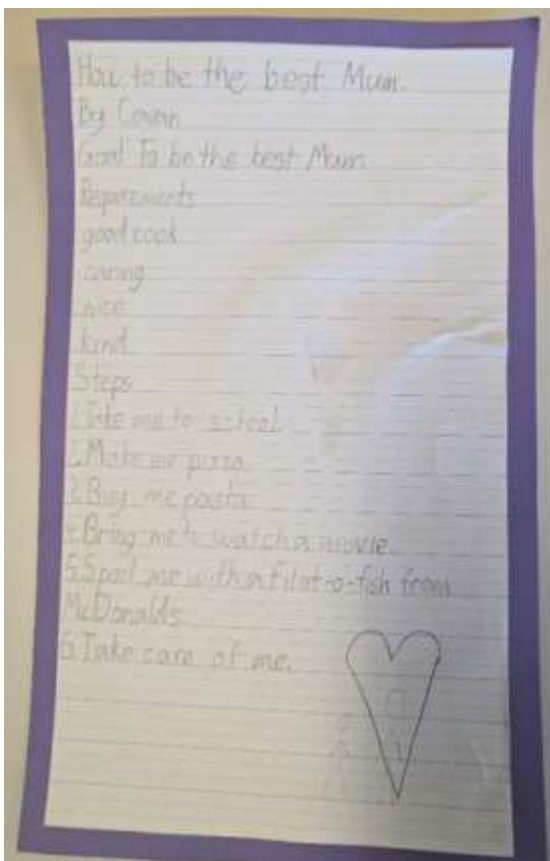 How to be the best Mum.
By
Goal To be the best Mum
Requirements
good cook
caring
nice
kind
Steps
1. Take me to school
2. Make me pizza
3. Buy me pasta
4. Bring me to watch a movie
5. Spoil me with a filet-o-fish from
McDonalds
6. Take care of me.